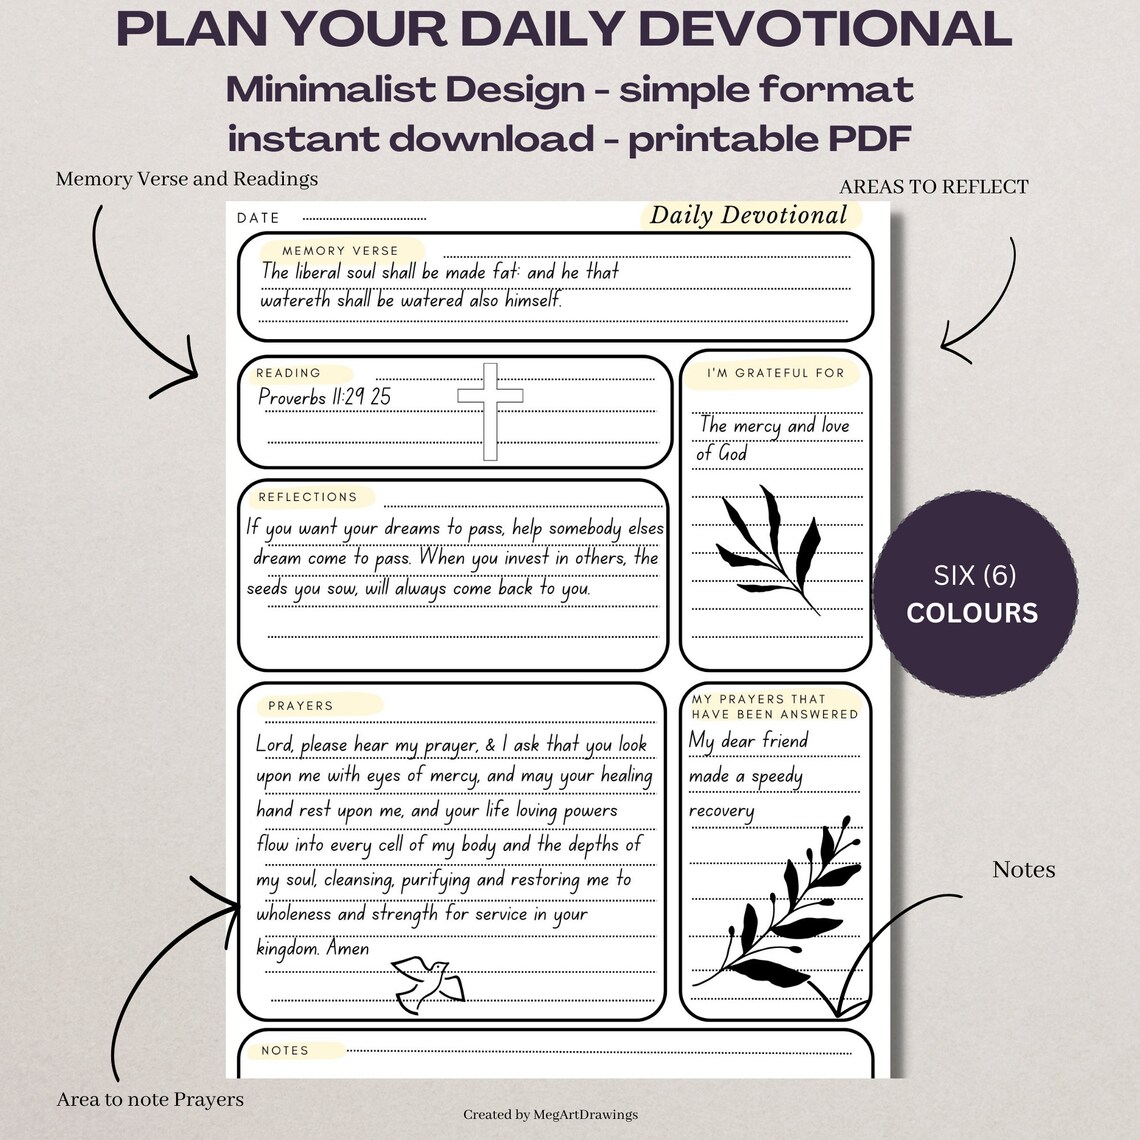 PLAN YOUR DAILY DEVOTIONAL
Minimalist Design - simple format
instant download - printable PDF
Memory Verse and Readings
AREAS TO REFLECT
DATE
Daily Devotional
MEMORY VERSE
The liberal soul shall be made fat: and he that
watereth shall be watered also himself.
READING
Proverbs 11:29 25
I'M GRATEFUL FOR
The mercy and love
of God
REFLECTIONS
If you want your dreams to pass, help somebody elses
dream come to pass. When you invest in others, the
seeds you sow, will always come back to you.
SIX (6)
COLOURS
PRAYERS
Lord, please hear my prayer, & I ask that you look
upon me with eyes of mercy, and may your healing
hand rest upon me, and your life loving powers
flow into every cell of my body and the depths of
my soul, cleansing, purifying and restoring me to
wholeness and strength for service in your
kingdom. Amen
MY PRAYERS THAT
HAVE BEEN ANSWERED
My dear friend
made a speedy
recovery
Notes
NOTES
Area to note Prayers
Created by MegArtDrawings